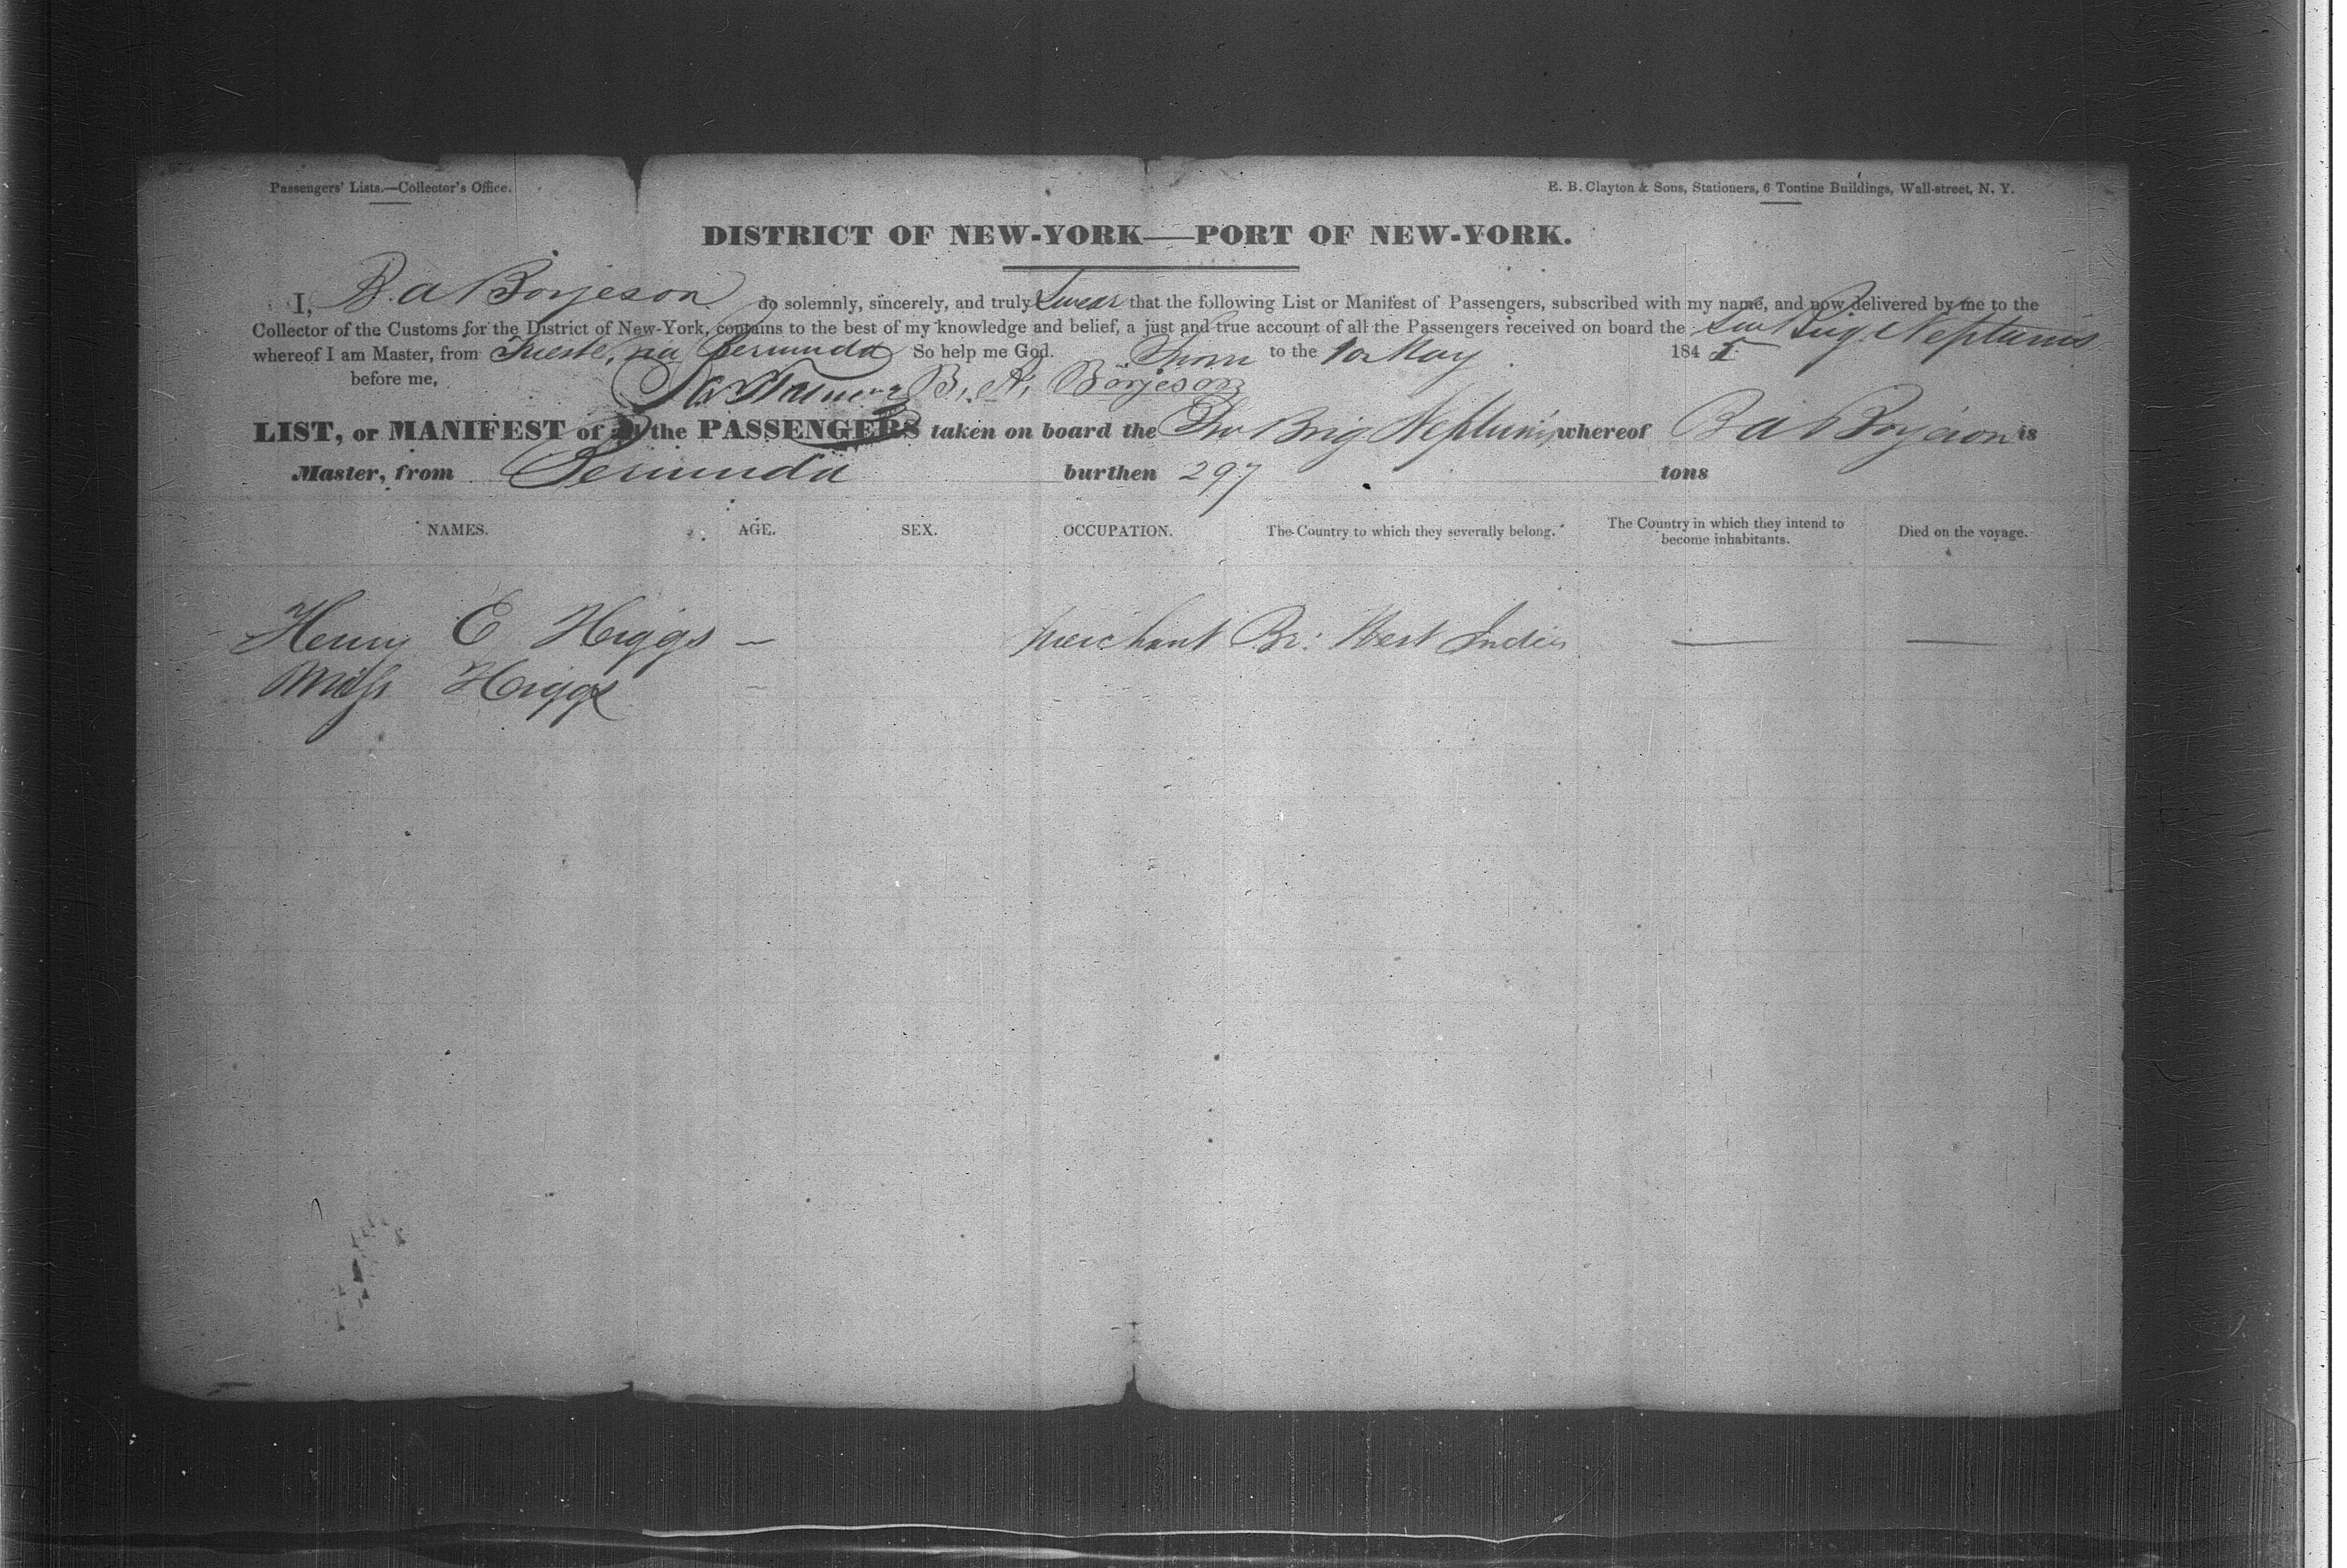 Passengers' Lists.—Collector's Office.
E. B. Clayton & Sons, Stationers, 6 Tontine Buildings, Wall-street, N. Y.
DISTRICT OF NEW-YORK—PORT OF NEW-YORK.
I, B. a Borjeson do solemnly, sincerely, and truly Swear that the following List or Manifest of Passengers, subscribed with my name, and now delivered by me to the
Collector of the Customs for the District of New-York, contains to the best of my knowledge and belief, a just and true account of all the Passengers received on board the Brig Neptunus
whereof I am Master, from Trieste, via Bermuda So help me God. Sworn to the 10 May 1845
before me, B. A. Börjeson
LIST, or MANIFEST of all the PASSENGERS taken on board the Brig Neptunus whereof B a Borjeson is
Master, from Bermuda burthen 297 tons
NAMES. AGE. SEX. OCCUPATION. The Country to which they severally belong. The Country in which they intend to become inhabitants. Died on the voyage.
Henry E Higgs — Merchant Br: West Indies — —
Miss Higgs —